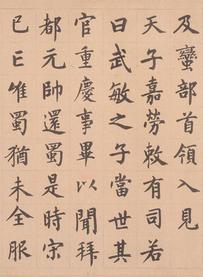 及蠻部首領入見
天子嘉勞敕有司若
曰武敏之子當世其
官重慶事畢以聞拜
都元帥還蜀是時宋
已亡唯蜀猶未全服